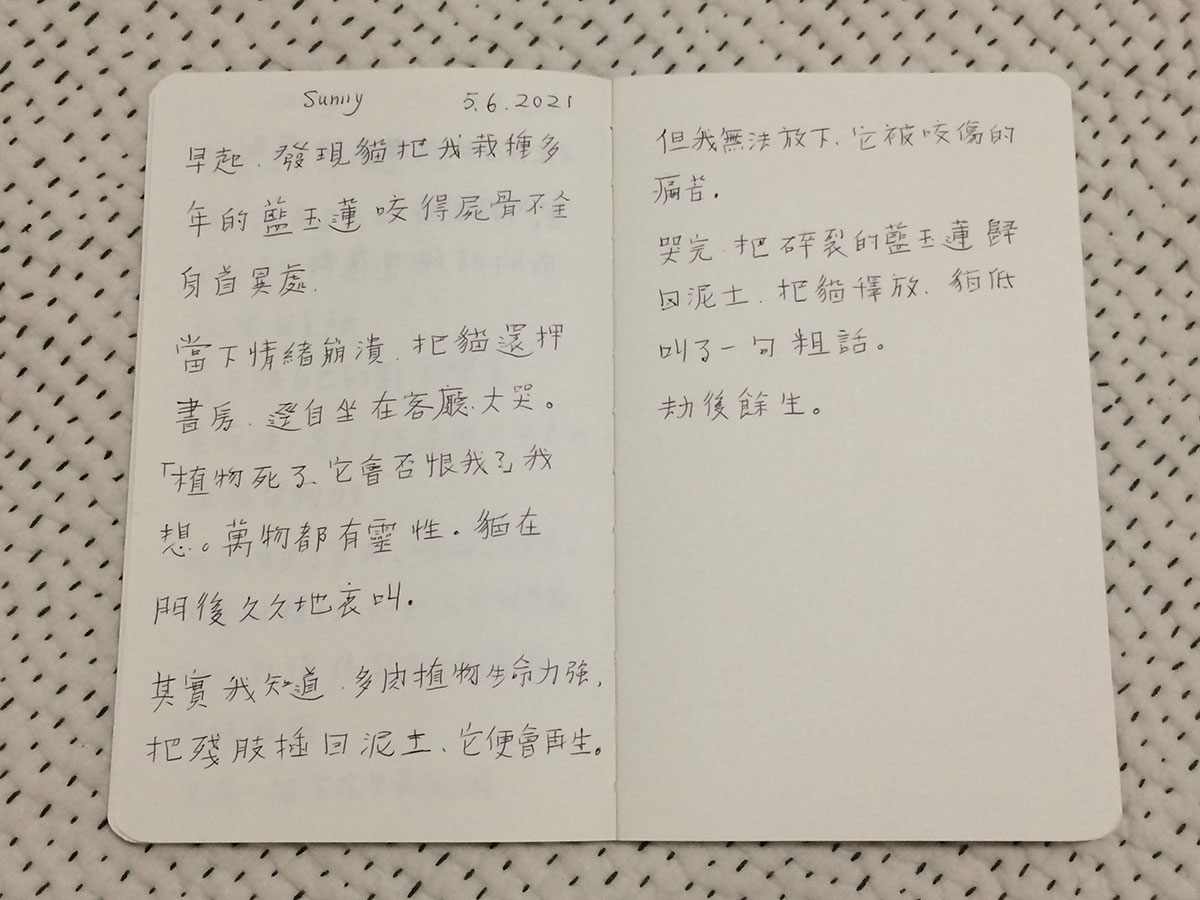 Sunny 5.6.2021
早起、發現貓把我栽種多
年的藍玉蓮咬得屍骨不全
身首異處、
當下情緒崩潰、把貓還押
書房、逕自坐在客廳大哭。
「植物死了、它會否恨我？」我
想。萬物都有靈性。貓在
門後久久地哀叫。
其實我知道、多肉植物生命力強，
把殘肢插回泥土、它便會再生。
但我無法放下、它被咬傷的
痛苦。
哭完、把碎裂的藍玉蓮歸
回泥土、把貓釋放、貓低
叫了一句粗話。
劫後餘生。